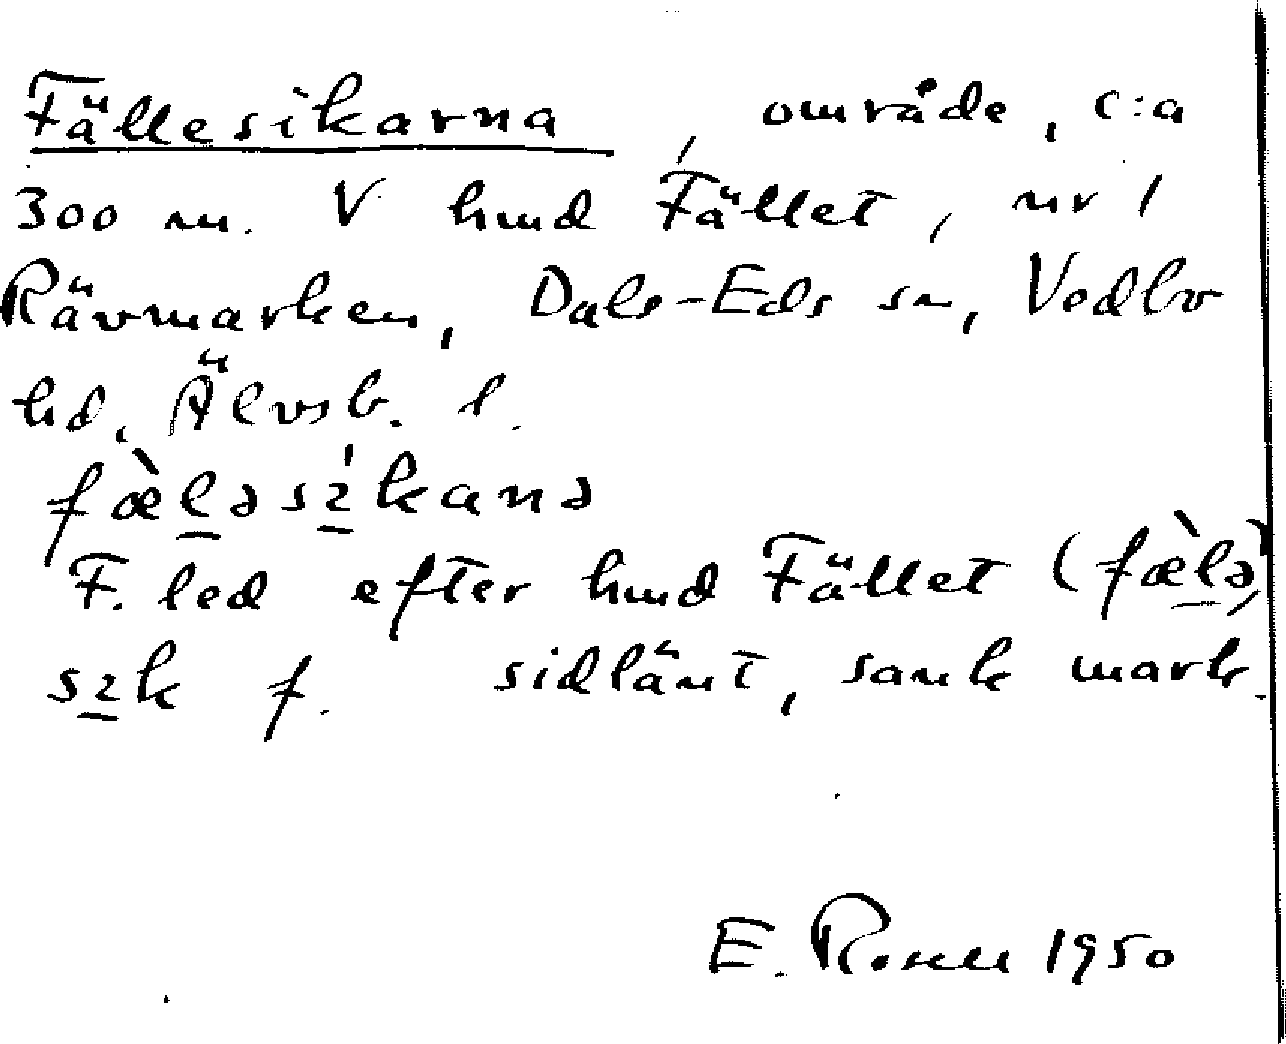 Fällesikarna, område, c:a
300 m. V hmd Fället, nr 1
Rävmarken, Dals-Eds sn, Vedbo
hd, Älvsb. l.
fæ̀ləsíkanə
F. led efter hmd Fället (fæ̀lə)
sɪk f. sidlänt, sank mark.
E. Rosell 1950